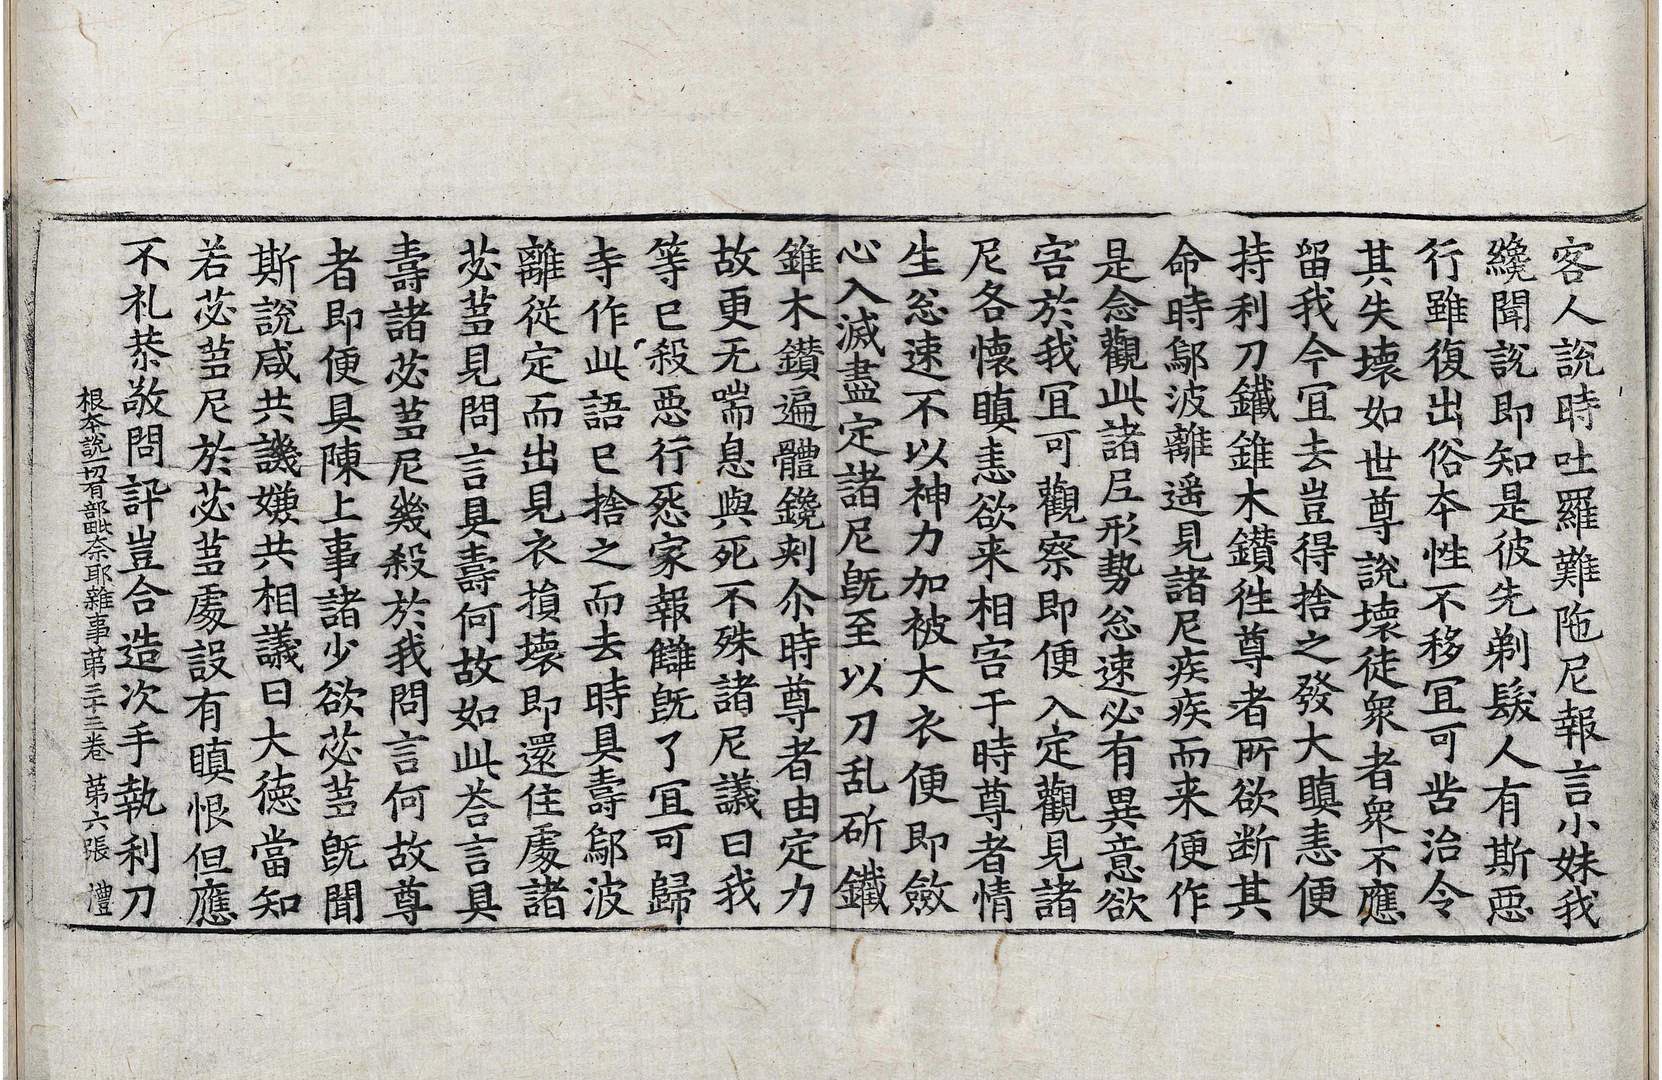 客人說時吐羅難陁尼報言小妹我
纔聞說即知是彼先剃髮人有斯惡
行雖復出俗本性不移冝可甞治令
其失壞如世尊說壞徒衆者衆不應
留我今冝去豈得捨之發大瞋恚便
持利刀鐵錐木鑚徃尊者所欲断其
命時鄔波離遥見諸尼疾疾而来便作
是念觀此諸尼形勢忩速必有異意欲
害於我冝可觀察即便入定觀見諸
尼各懷瞋恚欲来相害于時尊者情
生忩速不以神力加被大衣便即斂
心入滅盡定諸尼旣至以刀乱斫鐵
錐木鑚遍體鑱刾尒時尊者由定力
故更无喘息與死不殊諸尼議曰我
等已殺惡行怨家報讎旣了冝可歸
寺作此語已捨之而去時具壽鄔波
離從定而出見衣損壞即還住處諸
苾蒭見問言具壽何故如此荅言具
壽諸苾蒭尼幾殺於我問言何故尊
者即便具陳上事諸少欲苾蒭旣聞
斯說咸共譏嫌共相議曰大德當知
若苾蒭尼於苾蒭處設有瞋恨但應
不礼恭敬問訊豈合造次手執利刀
根本說一切有部毗奈耶雜事苐三十三卷 苐六張 澧